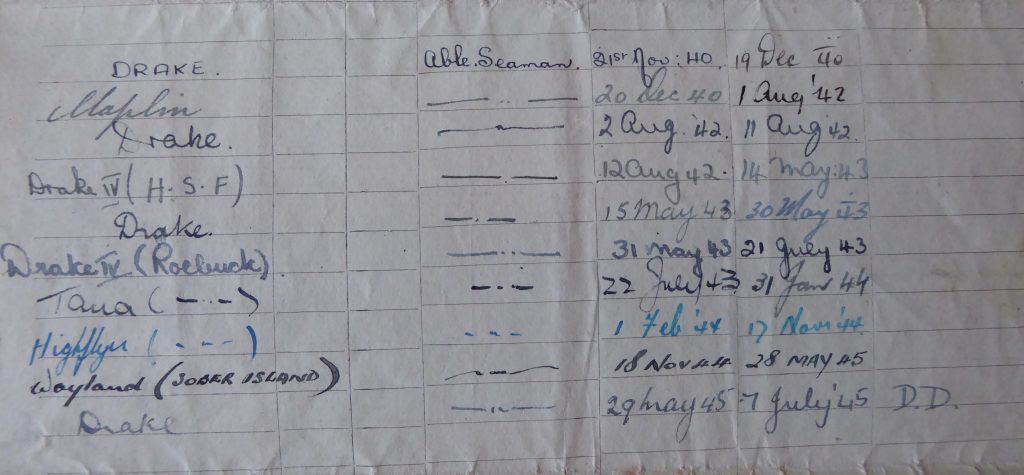 DRAKE. Able. Seaman. 21st Nov: 40. 19 Dec 40
Maplin — .. — 20 Dec 40 1 Aug '42
Drake. — . — 2 Aug. '42. 11 Aug 42.
Drake IV (H. S. F) — . — 12 Aug 42. 14 May. 43
Drake. — . — 15 May 43 30 May 43
Drake IV (Roebuck) — .. — 31 May 43 21 July 43
Tana ( — . — ) — . — 22 July 43 31 Jan 44
Highflyer ( - - - ) - - - 1 Feb '44 17 Nov '44
Wayland (SOBER ISLAND) — . — 18 NOV 44 28 MAY 45
Drake — .. — 29 May 45 7 July '45 D.D.